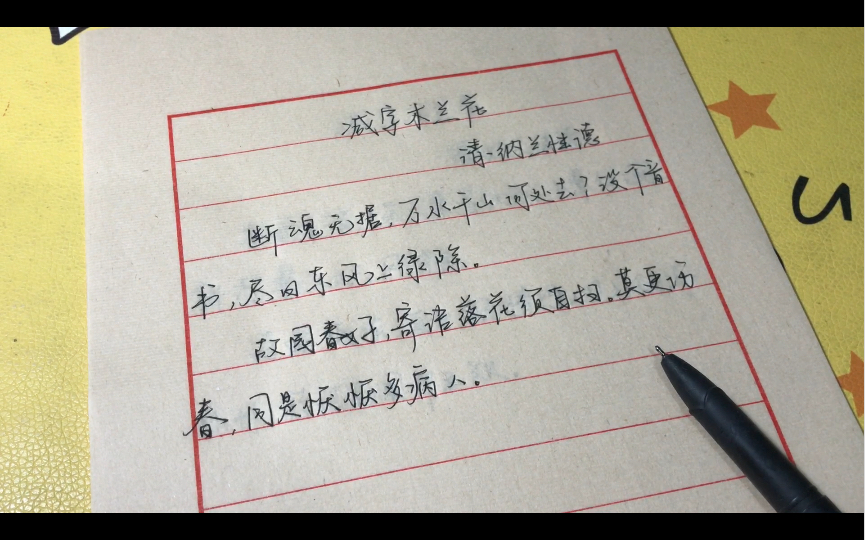 减字木兰花
清·纳兰性德
断魂无据，万水千山何处去？没个音
书，尽日东风上绿除。
故园春好，寄语落花须自扫。莫更伤
春，同是恹恹多病人。